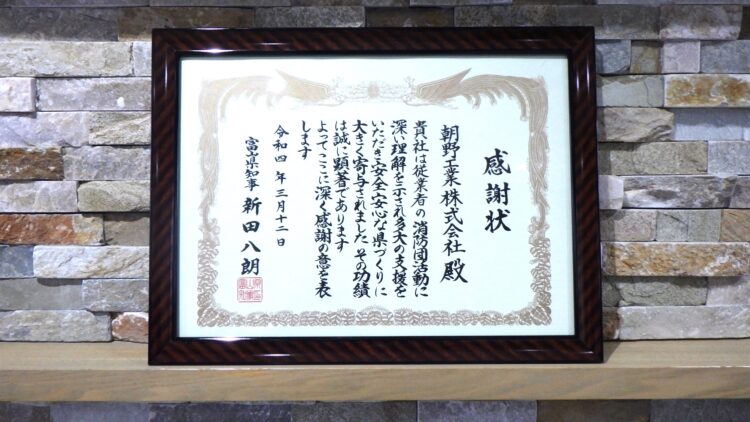 感謝状
朝野工業株式会社 殿
貴社は従業者の消防団活動に
深い理解を示され多大の支援を
いただき安全・安心な県づくりに
大きく寄与されましたその功績
は誠に顕著であります
よってここに深く感謝の意を表
します
令和四年三月十二日
富山県知事 新田八朗